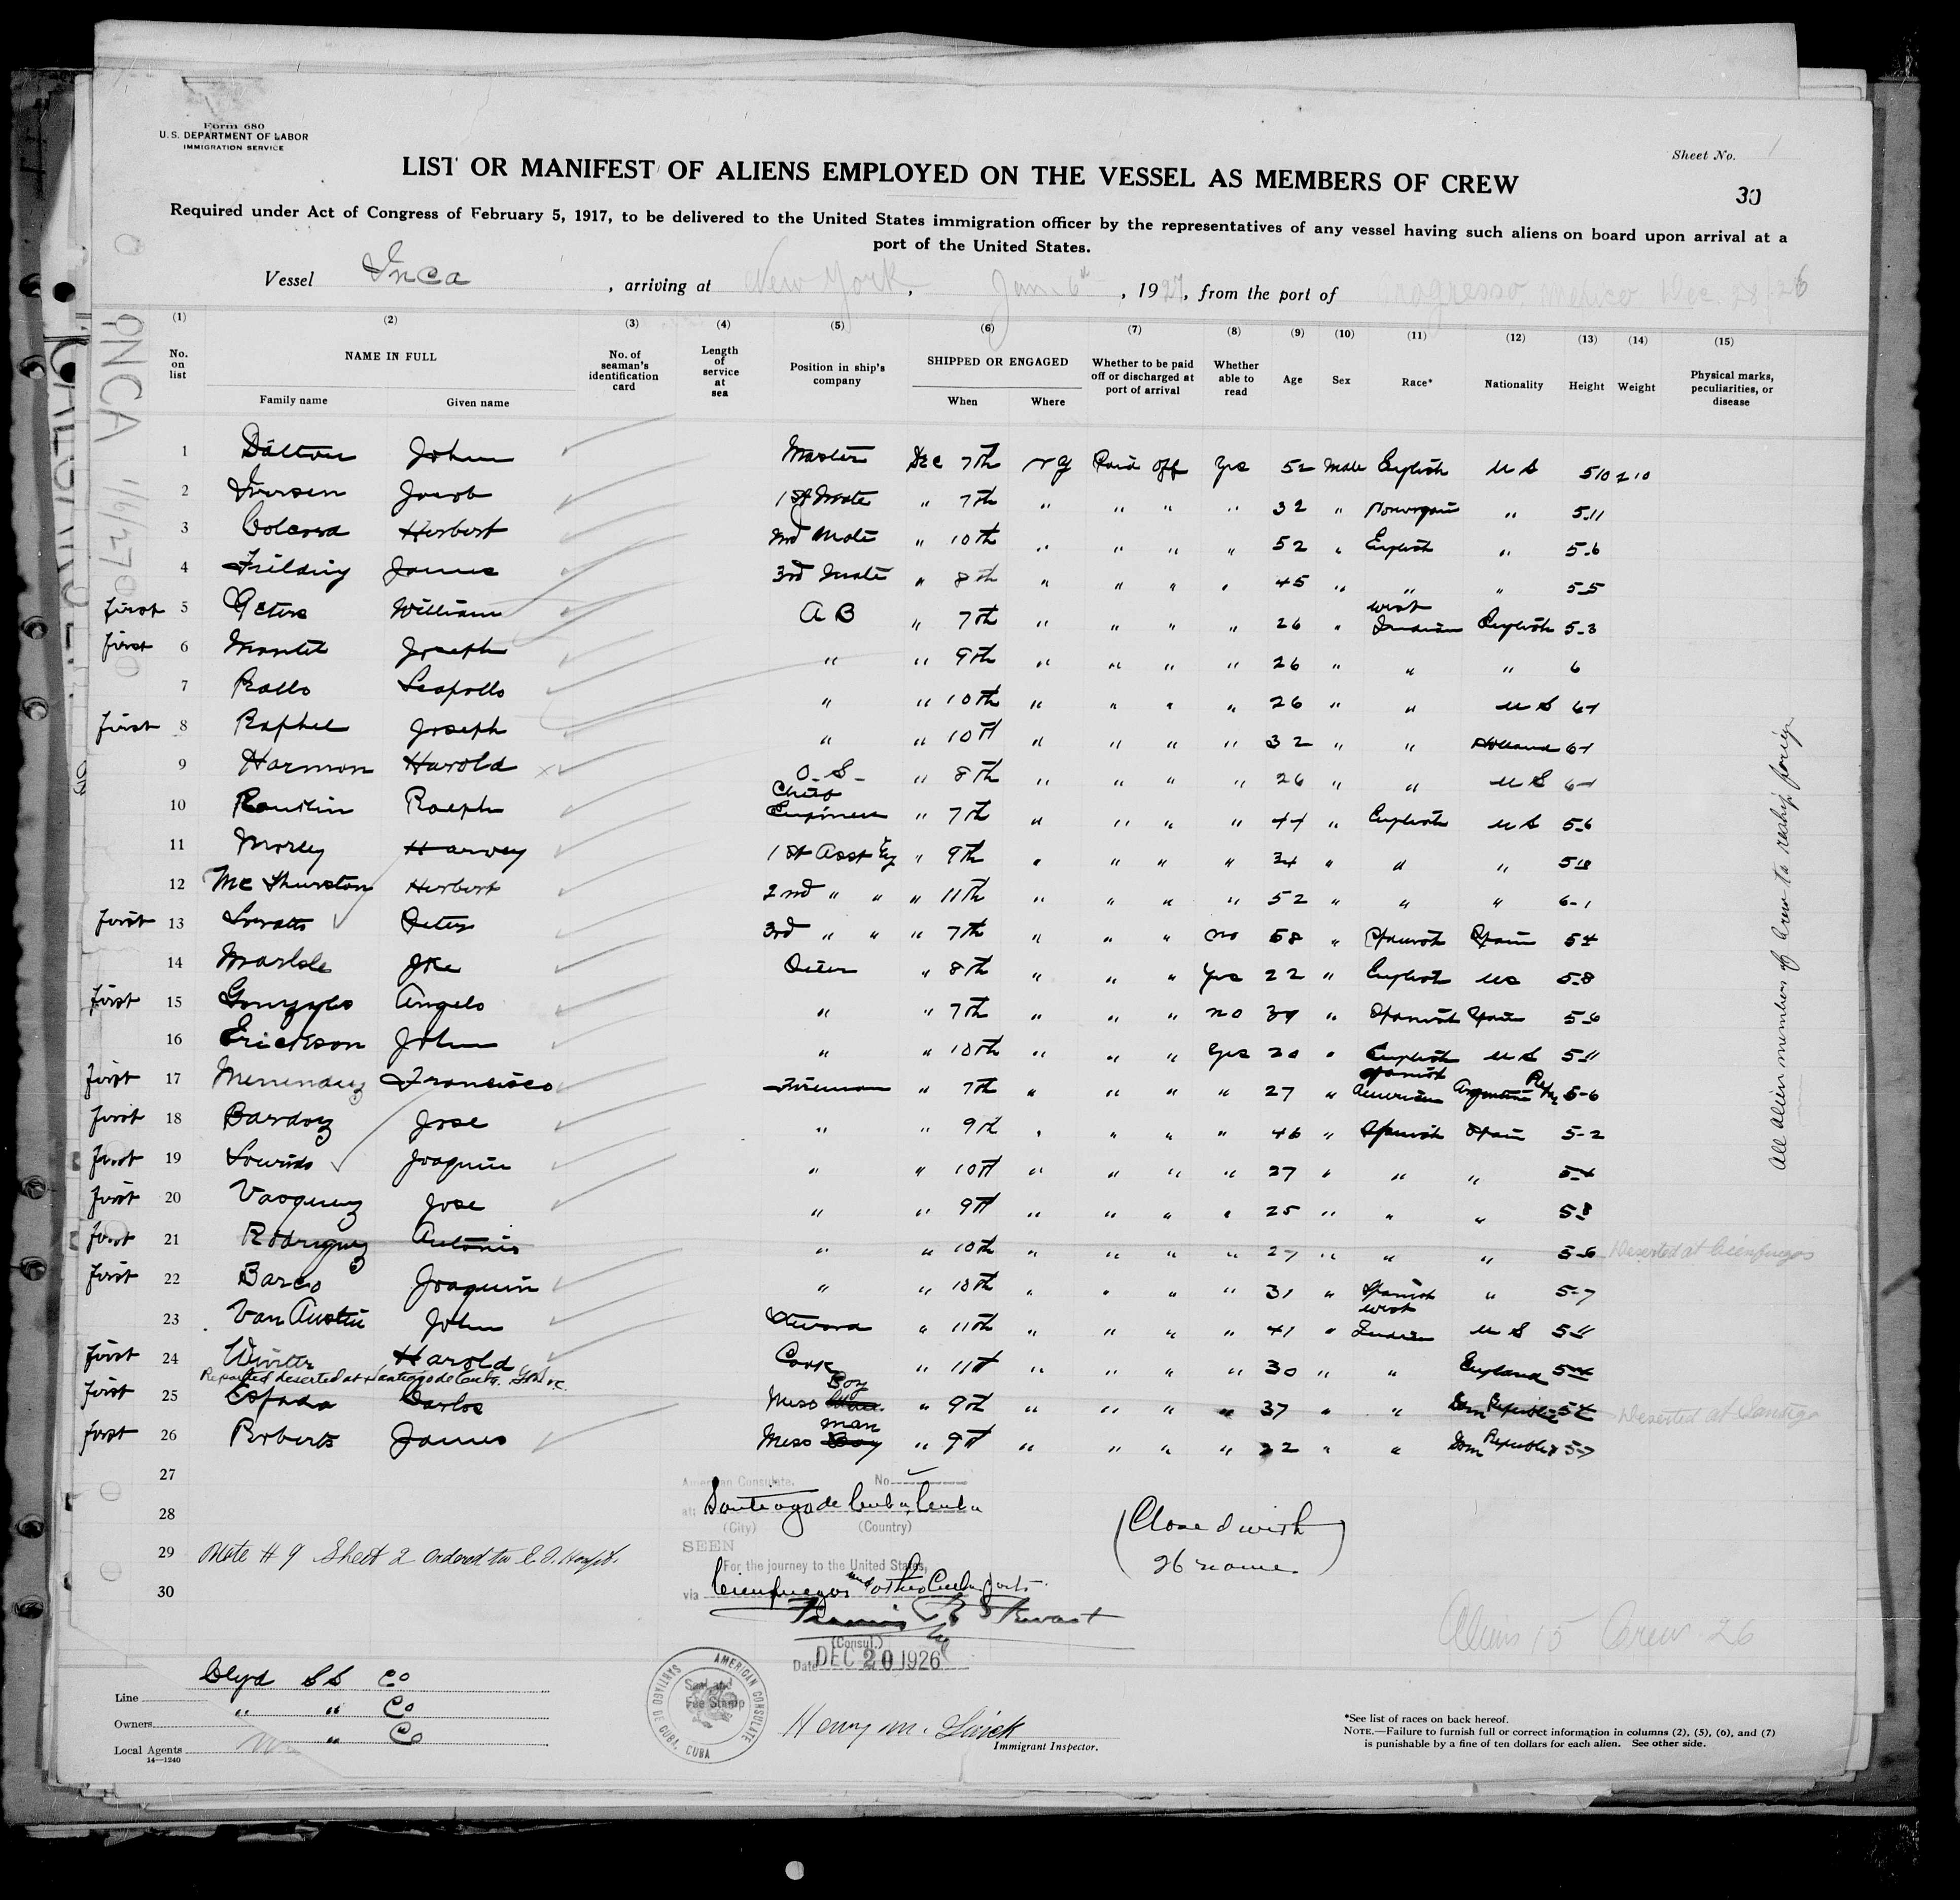 Form 680
U. S. DEPARTMENT OF LABOR
IMMIGRATION SERVICE
Sheet No. 1
LIST OR MANIFEST OF ALIENS EMPLOYED ON THE VESSEL AS MEMBERS OF CREW
30
Required under Act of Congress of February 5, 1917, to be delivered to the United States immigration officer by the representatives of any vessel having such aliens on board upon arrival at a
port of the United States.
Vessel Inca , arriving at New York , Jan. 6th , 1927, from the port of Progresso, Mexico Dec. 28/26
(1) (2) (3) (4) (5) (6) (7) (8) (9) (10) (11) (12) (13) (14) (15)
No. on list NAME IN FULL Family name Given name No. of seaman's identification card Length of service at sea Position in ship's company SHIPPED OR ENGAGED When Where Whether to be paid off or discharged at port of arrival Whether able to read Age Sex Race* Nationality Height Weight Physical marks, peculiarities, or disease
1 Dalton John Master Dec 7th NY Paid Off Yes 52 Male English U S 5 10 210
2 Iversen Jacob 1st Mate " 7th " " " " 32 " Norwegian " 5-11
3 Herbert 2nd Mate " 10th " " " " 52 " English " 5-6
4 Fielding James 3rd Mate " 8th " " " " 45 " " " 5-5
first 5 Peters William A B " 7th " " " " 26 " West Indian English 5-3
first 6 Joseph " " 9th " " " " 26 " " " 6
7 Rallo " " 10th " " " " 26 " " U S 6-1
first 8 Raphel Joseph " " 10th " " " " 32 " " Holland 6-1
9 Harmon Harold O. S. " 8th " " " " 26 " " U S 6-1
10 Ralph Chief Engineer " 7th " " " " 44 " English U S 5-6
11 Morley Harvey 1st Asst Eng " 9th " " " " 34 " " "
12 McThurston Herbert 2nd " " " 11th " " " " 52 " " " 6-1
first 13 Peter 3rd " " " 7th " " " no 58 " Spanish Spain 5-4
14 Joe Oiler " 8th " " " Yes 22 " English US 5-8
first 15 Gonzales Angelo " " 7th " " " no 39 " Spanish Spain 5-6
16 Erickson John " " 10th " " " Yes 20 " English U S 5-11
first 17 Menendez Francisco Fireman " 7th " " " " 27 " Spanish American Argentine Rep 5-6
first 18 Jose " " 9th " " " " 46 " Spanish Spain 5-2
first 19 Joaquin " " 10th " " " " 27 " " " 5-4
first 20 Vasquez Jose " " 9th " " " " 25 " " " 5-8
first 21 Rodriguez Antonio " " 10th " " " " 27 " " " 5-6 Deserted at Cienfuegos
first 22 Barco Joaquin " " 10th " " " " 31 " Spanish " 5-7
23 Van Austin John Steward " 11th " " " " 41 " West Indian U S 5-11
first 24 Winter Harold Cook " 11th " " " " 30 " " England 5-4
Reported deserted at Santiago de Cuba.
first 25 Espada Carlos Mess Boy " 9th " " " " 37 " " Dom Republic 5-4 Deserted at Santiago
first 26 Roberts James Mess man Boy " 9th " " " " 22 " " Dom Republic 5-7
27
28
29 Note # 9 Sheet 2 ordered to E. I. Hospt.
30
American Consulate. No.
at: Santiago de Cuba, Cuba
(City) (Country)
SEEN
For the journey to the United States,
via Cienfuegos and other Cuban ports.
(Consul.)
Date DEC 20 1926
(Closed with
26 names.)
Aliens 15 Crew 26
All alien members of crew to reship foreign
INCA 1/6/27
AMERICAN CONSULATE
SANTIAGO DE CUBA, CUBA
Seal and
Fee Stamp
Line Clyd S S Co
Owners " " Co
Local Agents " Co
14—1240
Henry M.
Immigrant Inspector.
*See list of races on back hereof.
NOTE.—Failure to furnish full or correct information in columns (2), (5), (6), and (7)
is punishable by a fine of ten dollars for each alien. See other side.